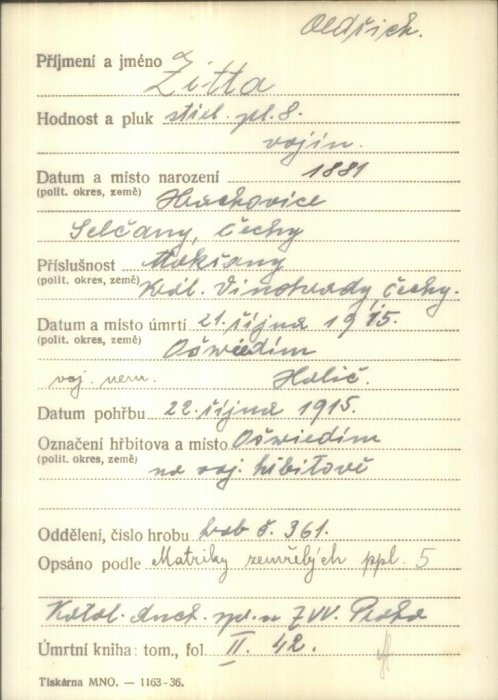 Oldřich.
Příjmení a jméno Zitta
Hodnost a pluk střel. pl. 8.
vojín.
Datum a místo narození 1881
(polit. okres, země) Hrachovice
Selčany, Čechy
Příslušnost Mokřany
(polit. okres, země) Král. Vinohrady, Čechy.
Datum a místo úmrtí 21. října 1915.
(polit. okres, země) Ošwiedím
voj. nem. Halič.
Datum pohřbu 22. října 1915.
Označení hřbitova a místo Ošwiedím
(polit. okres, země) na voj. hřbitově
Oddělení, číslo hrobu hrob č. 361.
Opsáno podle Matriky zemřelých ppl. 5
Katol. duch. spr. u ZVV. Praha
Úmrtní kniha: tom., fol. II. 42.
Tiskárna MNO. — 1163-36.